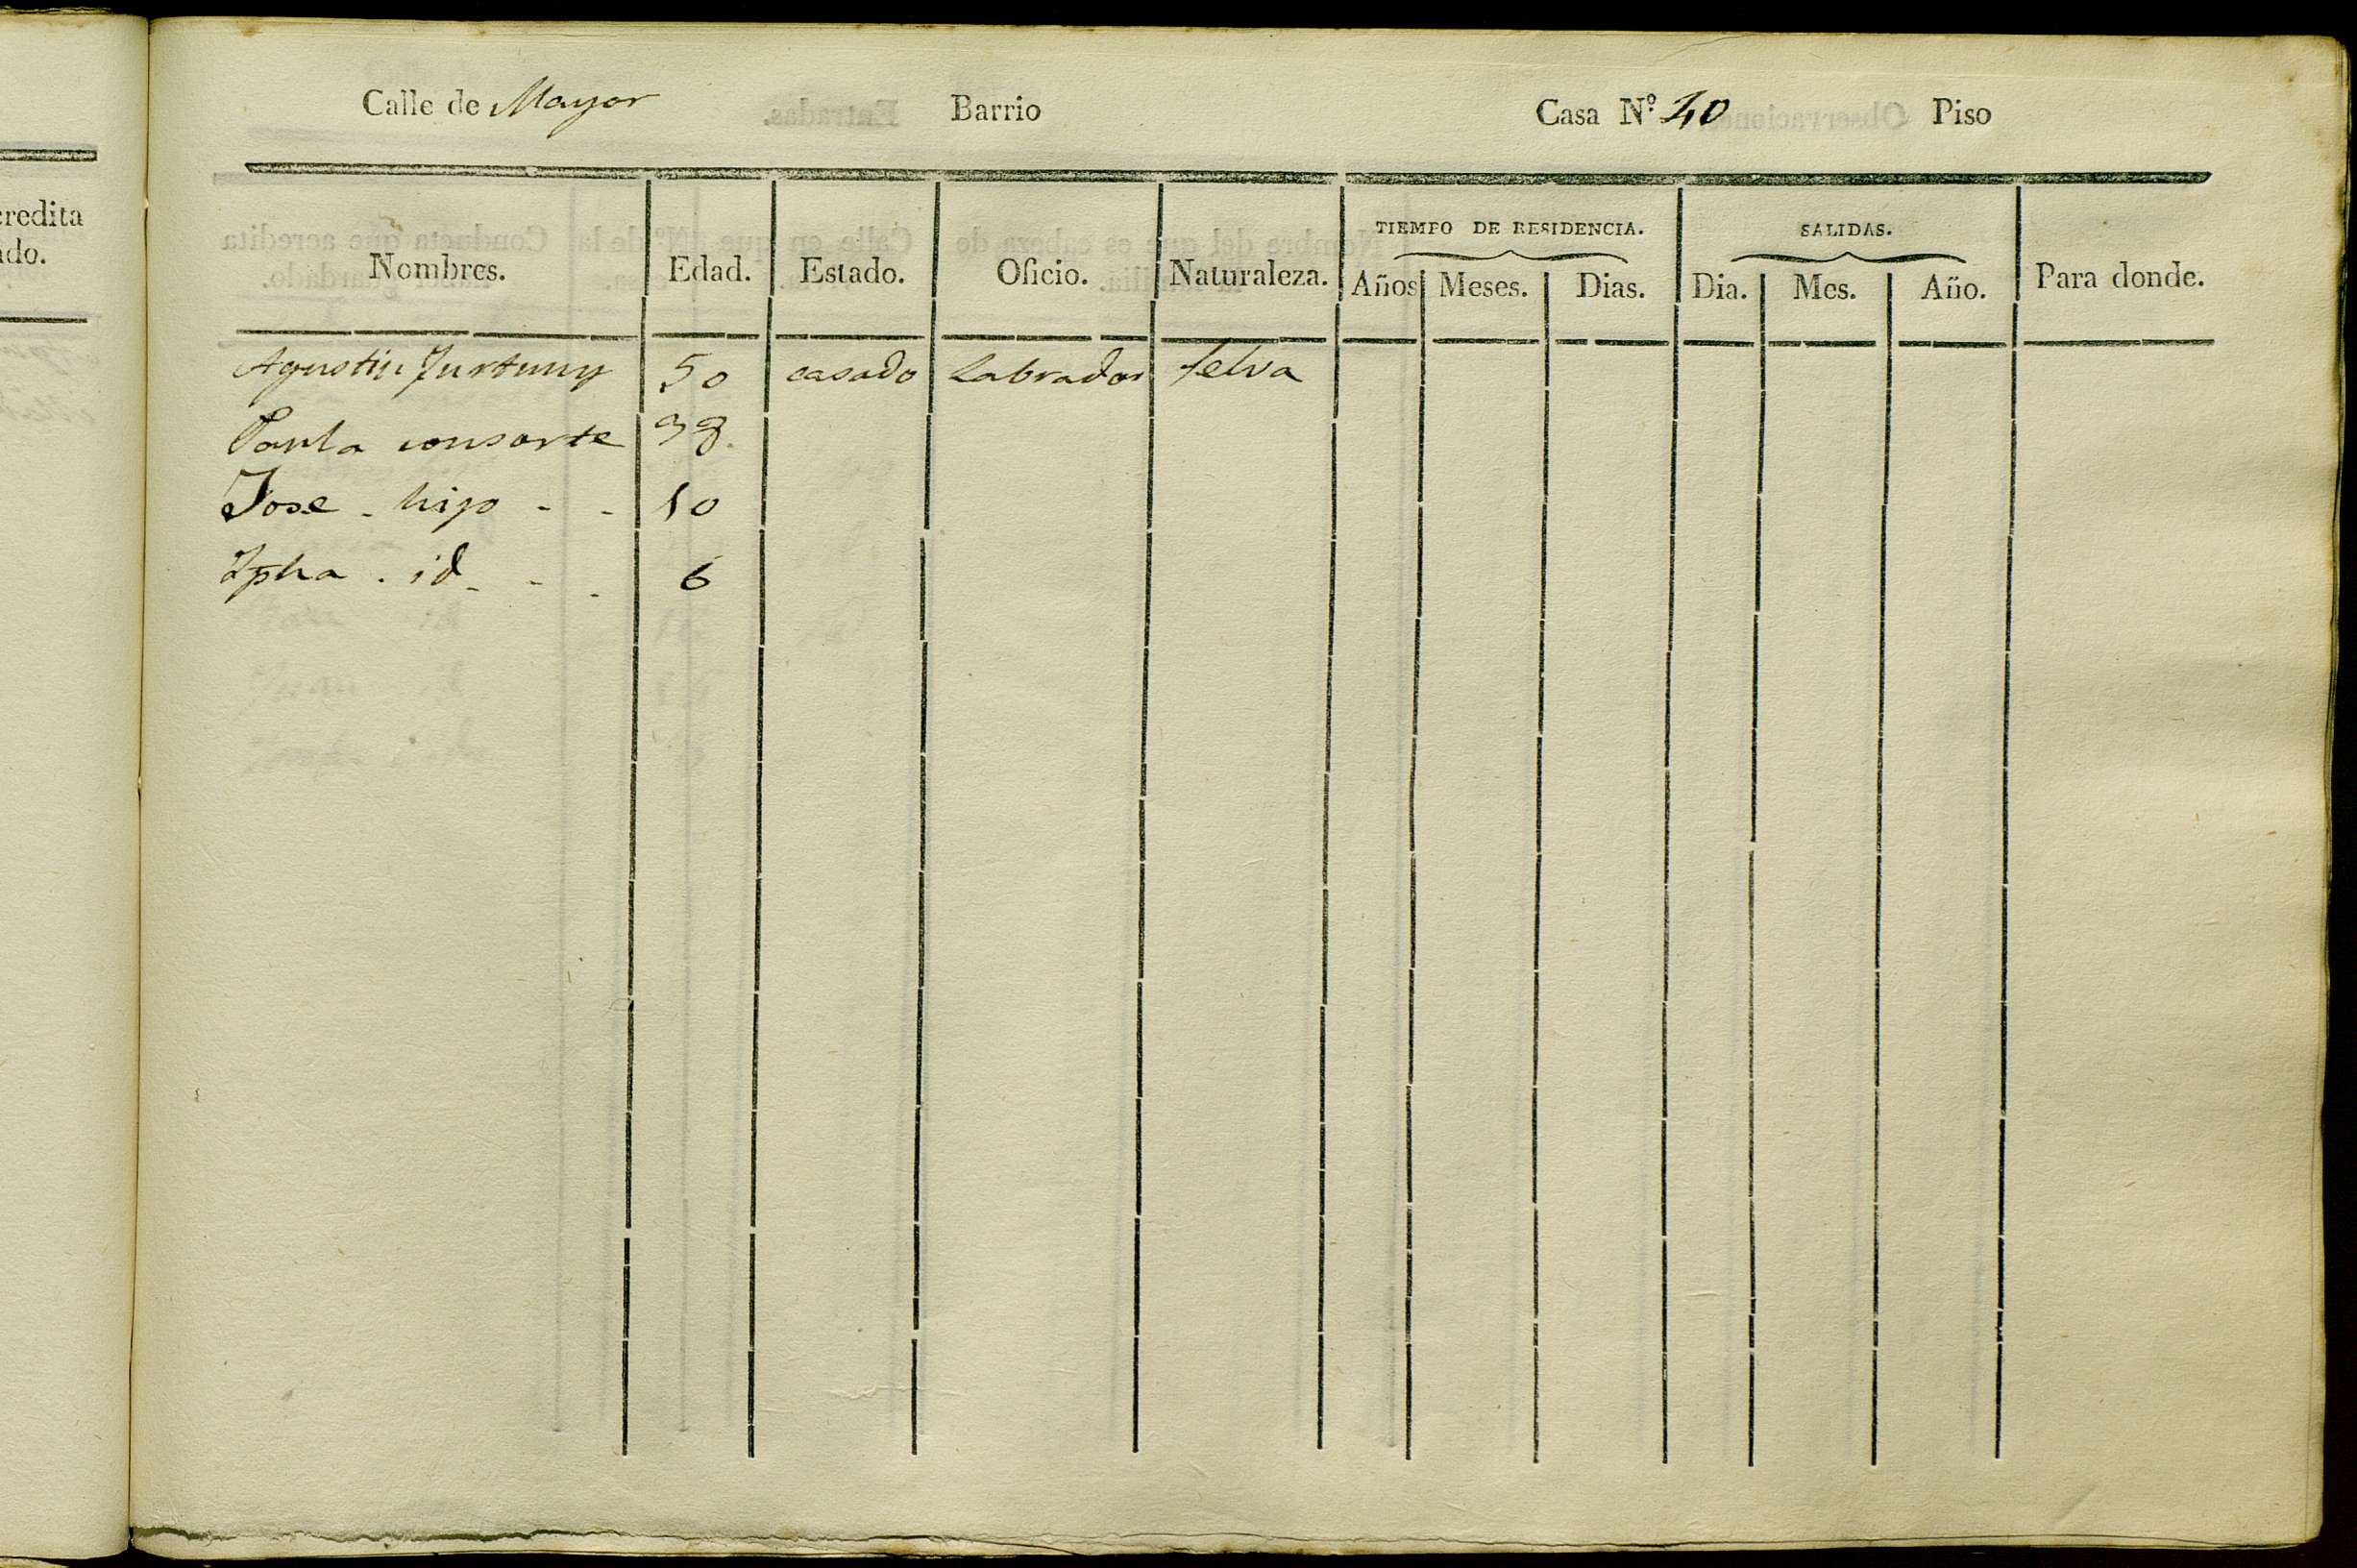 credita
ado.
Calle de Mayor Barrio Casa N.º 40 Piso
TIEMPO DE RESIDENCIA. SALIDAS.
Nombres. Edad. Estado. Oficio. Naturaleza. Años Meses. Dias. Dia. Mes. Año. Para donde.
Agustin 50 casado Labrador Selva
Paula consorte 38.
Jose - hijo - - 10
Jpha . id - - . 6